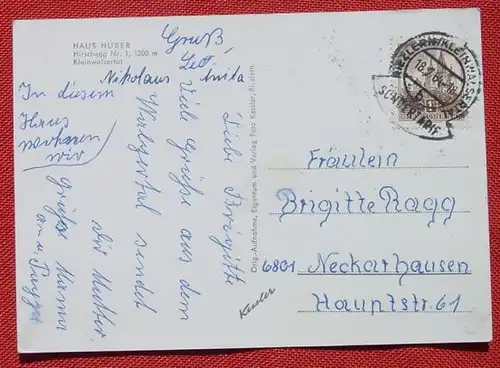 HAUS HUBER
Hirschegg Nr. 1, 1200 m
Kleinwalsertal
Gruß,
Nikolaus Anita
In diesem
Haus
wohnen
wir
Liebe Brigitte
Viele Grüße aus dem
Walsertal sendet
Dir Mutter.
Grüße Mama
Orig.-Aufnahme, Eigentum und Verlag Foto Kessler, Riezlern
Kessler
RIEZLERN/KLEINWALSERTAL
Fräulein
Brigitte Ragg
6801 Neckarhausen
Hauptstr. 61